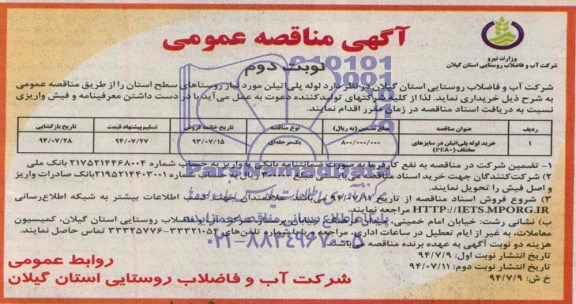 آگهی مناقصه عمومی
نوبت دوم
وزارت نیرو
شرکت آب و فاضلاب روستایی استان گیلان
شرکت آب و فاضلاب روستایی استان گیلان در نظر دارد لوله پلی اتیلن مورد نیاز روستاهای سطح استان را از طریق مناقصه عمومی
به شرح ذیل خریداری نماید. لذا از کلیه شرکتهای تولیدکننده دعوت به عمل می‌آید با در دست داشتن معرفینامه و فیش واریزی
نسبت به دریافت اسناد مناقصه در زمان مقرر اقدام نمایند.
ردیف عنوان مناقصه مبلغ تضمین (به ریال) نوع مناقصه تاریخ خاتمه فروش تسلیم پیشنهاد قیمت تاریخ بازگشایی
۱ خرید لوله پلی‌اتیلن در سایزهای مختلف (PE80) ۸۰۰/۰۰۰/۰۰۰ یک مرحله‌ای ۹۴/۰۷/۱۵ ۹۴/۰۷/۲۷ ۹۴/۰۷/۲۸
۱- تضمین شرکت در مناقصه به نفع کارفرما به صورت ضمانتنامه بانکی یا واریز به حساب ۲۱۷۵۲۱۴۴۶۸۰۰۴ بانک ملی
۲) شرکت‌کنندگان جهت خرید اسناد مناقصه بانک صادرات واریز
و اصل فیش را تحویل نمایند.
۳) شروع فروش اسناد مناقصه از تاریخ جهت اطلاعات بیشتر به شبکه اطلاع‌رسانی
HTTP://IETS.MPORG.IR مراجعه نمایند.
ب) نشانی رشت: خیابان امام خمینی، شرکت آب و فاضلاب روستایی استان گیلان، کمیسیون
معاملات، به غیر از ایام تعطیل در ساعات اداری، مراجعه و یا با شماره تلفن‌های ۳۳۳۲۱۰۵۴-۳۳۳۲۵۷۷۶ تماس حاصل نمایند.
هزینه دو نوبت آگهی به عهده برنده مناقصه می‌باشد.
تاریخ انتشار نوبت اول: ۹۴/۷/۹
تاریخ انتشار نوبت دوم: ۹۴/۰۷/۱۱
خ ش: ۹۴/۷/۹
روابط عمومی
شرکت آب و فاضلاب روستایی استان گیلان
۰۲۱-۸۸۳۴۹۶۷۰-۵